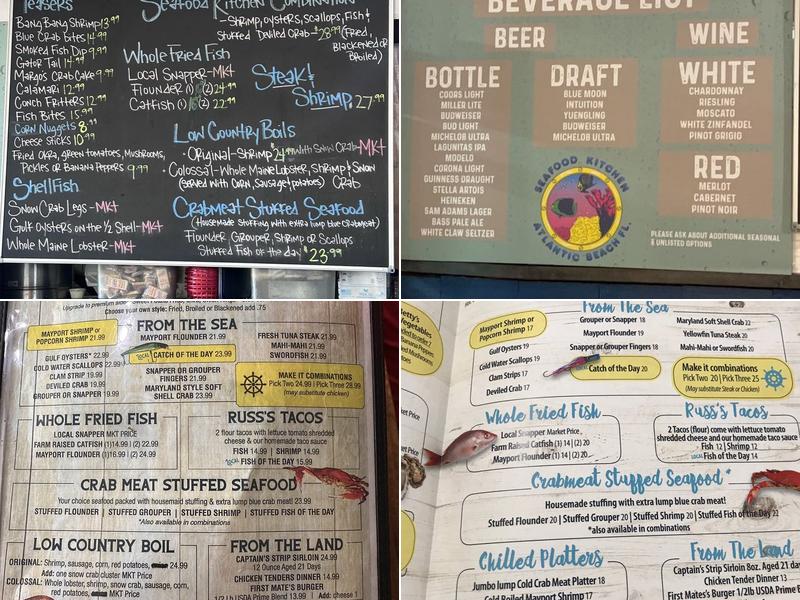 Teasers
Bang Bang Shrimp 13.99
Blue Crab Bites 14.99
Smoked Fish Dip 9.99
Gator Tail 14.99
Margo's Crab Cake 9.99
Calamari 12.99
Conch Fritters 12.99
Fish Bites 15.99
Corn Nuggets 8.99
Cheese Sticks 10.99
Fried Okra, green tomatoes, Mushrooms,
Pickles or Banana Peppers 9.99
Shellfish
Snow Crab Legs - MKt
Gulf Oysters on the ½ Shell - MKt
Whole Maine Lobster - MKt
Seafood Kitchen Combination
Shrimp, oysters, scallops, Fish &
Stuffed Deviled Crab - $28.99 (Fried,
Blackened or
Broiled)
Whole Fried Fish
Local Snapper - MKt
Flounder (1) (2) 24.99
Catfish (1) (2) 22.99
Steak &
Shrimp 27.99
Low Country Boils
• Original - Shrimp $24.99 with Snow Crab - MKt
• Colossal - Whole Maine Lobster, Shrimp & Snow
(served with Corn, Sausage & potatoes) Crab
Crabmeat Stuffed Seafood
(Housemade stuffing with extra lump blue crabmeat)
Flounder, Grouper, Shrimp or Scallops
Stuffed Fish of the day $23.99
BEVERAGE LIST
BEER
WINE
BOTTLE
COORS LIGHT
MILLER LITE
BUDWEISER
BUD LIGHT
MICHELOB ULTRA
LAGUNITAS IPA
MODELO
CORONA LIGHT
GUINNESS DRAUGHT
STELLA ARTOIS
HEINEKEN
SAM ADAMS LAGER
BASS PALE ALE
WHITE CLAW SELTZER
DRAFT
BLUE MOON
INTUITION
YUENGLING
BUDWEISER
MICHELOB ULTRA
WHITE
CHARDONNAY
RIESLING
MOSCATO
WHITE ZINFANDEL
PINOT GRIGIO
RED
MERLOT
CABERNET
PINOT NOIR
SEAFOOD KITCHEN
ATLANTIC BEACH FL
PLEASE ASK ABOUT ADDITIONAL SEASONAL
& UNLISTED OPTIONS
Upgrade to premium side
Choose your own style: Fried, Broiled or Blackened add .75
FROM THE SEA
MAYPORT SHRIMP or
POPCORN SHRIMP 21.99
GULF OYSTERS* 22.99
COLD WATER SCALLOPS 22.99
CLAM STRIP 19.99
DEVILED CRAB 19.99
GROUPER or SNAPPER 19.99
MAYPORT FLOUNDER 21.99
LOCAL CATCH OF THE DAY 23.99
SNAPPER or GROUPER
FINGERS 21.99
MARYLAND STYLE SOFT
SHELL CRAB 23.99
FRESH TUNA STEAK 21.99
MAHI-MAHI 21.99
SWORDFISH 21.99
MAKE IT COMBINATIONS
Pick Two 24.99 | Pick Three 28.99
(May substitute chicken)
WHOLE FRIED FISH
LOCAL SNAPPER MKT PRICE
FARM RAISED CATFISH (1)14.99 | (2) 22.99
MAYPORT FLOUNDER (1)16.99 | (2) 24.99
RUSS'S TACOS
2 flour tacos with lettuce tomato shredded
cheese & our homemade taco sauce
FISH 14.99 | SHRIMP 14.99
LOCAL FISH OF THE DAY 15.99
CRAB MEAT STUFFED SEAFOOD
Your choice seafood packed with housemaid stuffing & extra lump blue crab meat! 23.99
STUFFED FLOUNDER | STUFFED GROUPER | STUFFED SHRIMP | STUFFED FISH OF THE DAY
*Also available in combinations
LOW COUNTRY BOIL
ORIGINAL: Shrimp, sausage, corn, red potatoes, 24.99
Add: one snow crab cluster MKT Price
COLOSSAL: Whole lobster, shrimp, snow crab, sausage, corn,
red potatoes, MKT Price
FROM THE LAND
CAPTAIN'S STRIP SIRLOIN 24.99
12 Ounce Aged 21 Days
CHICKEN TENDERS DINNER 14.99
FIRST MATE'S BURGER
1/2 lb USDA Prime Blend 13.99 | Add: cheese 1
Betty's
Vegetables
Banana Peppers
Mushrooms
From the Sea
Mayport Shrimp or
Popcorn Shrimp 17
Gulf Oysters 19
Cold Water Scallops 19
Clam Strips 17
Deviled Crab 17
Grouper or Snapper 18
Mayport Flounder 19
Snapper or Grouper Fingers 18
LOCAL Catch of the Day 20
Maryland Soft Shell Crab 22
Yellowfin Tuna Steak 20
Mahi-Mahi or Swordfish 20
Make it combinations
Pick Two 20 | Pick Three 25
(May substitute Steak or Chicken)
Whole Fried Fish
Local Snapper Market Price
Farm Raised Catfish (1) 14 | (2) 20
Mayport Flounder (1) 14 | (2) 20
Russ's Tacos
2 Tacos (flour) come with lettuce tomato
shredded cheese and our homemade taco sauce
Fish 12 | Shrimp 12
LOCAL Fish of the Day 14
Crabmeat Stuffed Seafood*
Housemade stuffing with extra lump blue crab meat!
Stuffed Flounder 20 | Stuffed Grouper 20 | Stuffed Shrimp 20 | Stuffed Fish of the Day 22
*also available in combinations
Chilled Platters
Jumbo lump Cold Crab Meat Platter 18
Cold Boiled Mayport Shrimp 17
From The Land
Captain's Strip Sirloin 8oz. Aged 21 day
Chicken Tender Dinner 13
First Mates's Burger 1/2lb USDA Prime